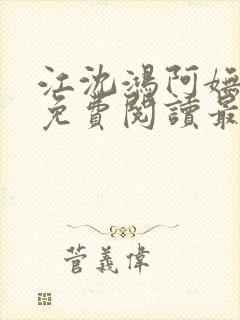 江沈鴻阿嫵
免費閱讀最
菅義偉